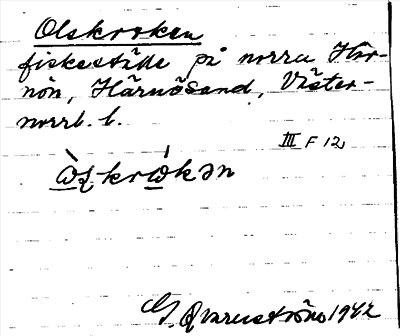 Olskroken
fiskeställe på norra Här-
nön, Härnösand, Väster-
norrl. l.
III F 12
kro̱kən
G. Qvarnström 1942